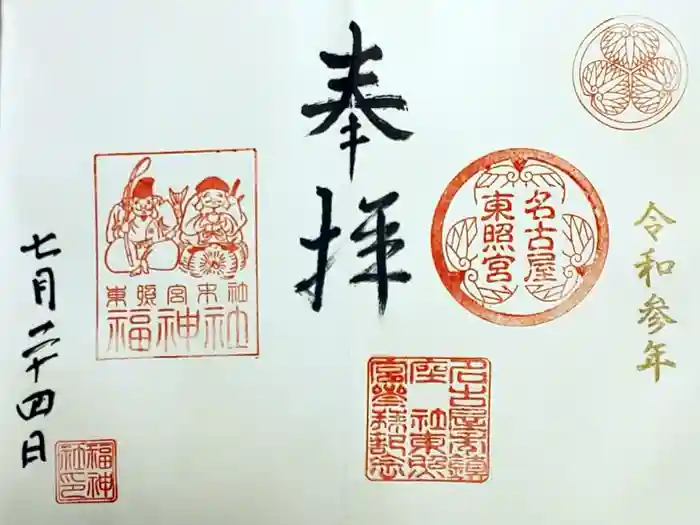 令和参年
名古屋
東照宮
名古屋東鎮
座 社東照
宮参拝記念
奉拝
東照宮末社
福神社
七月二十四日
福神
社印